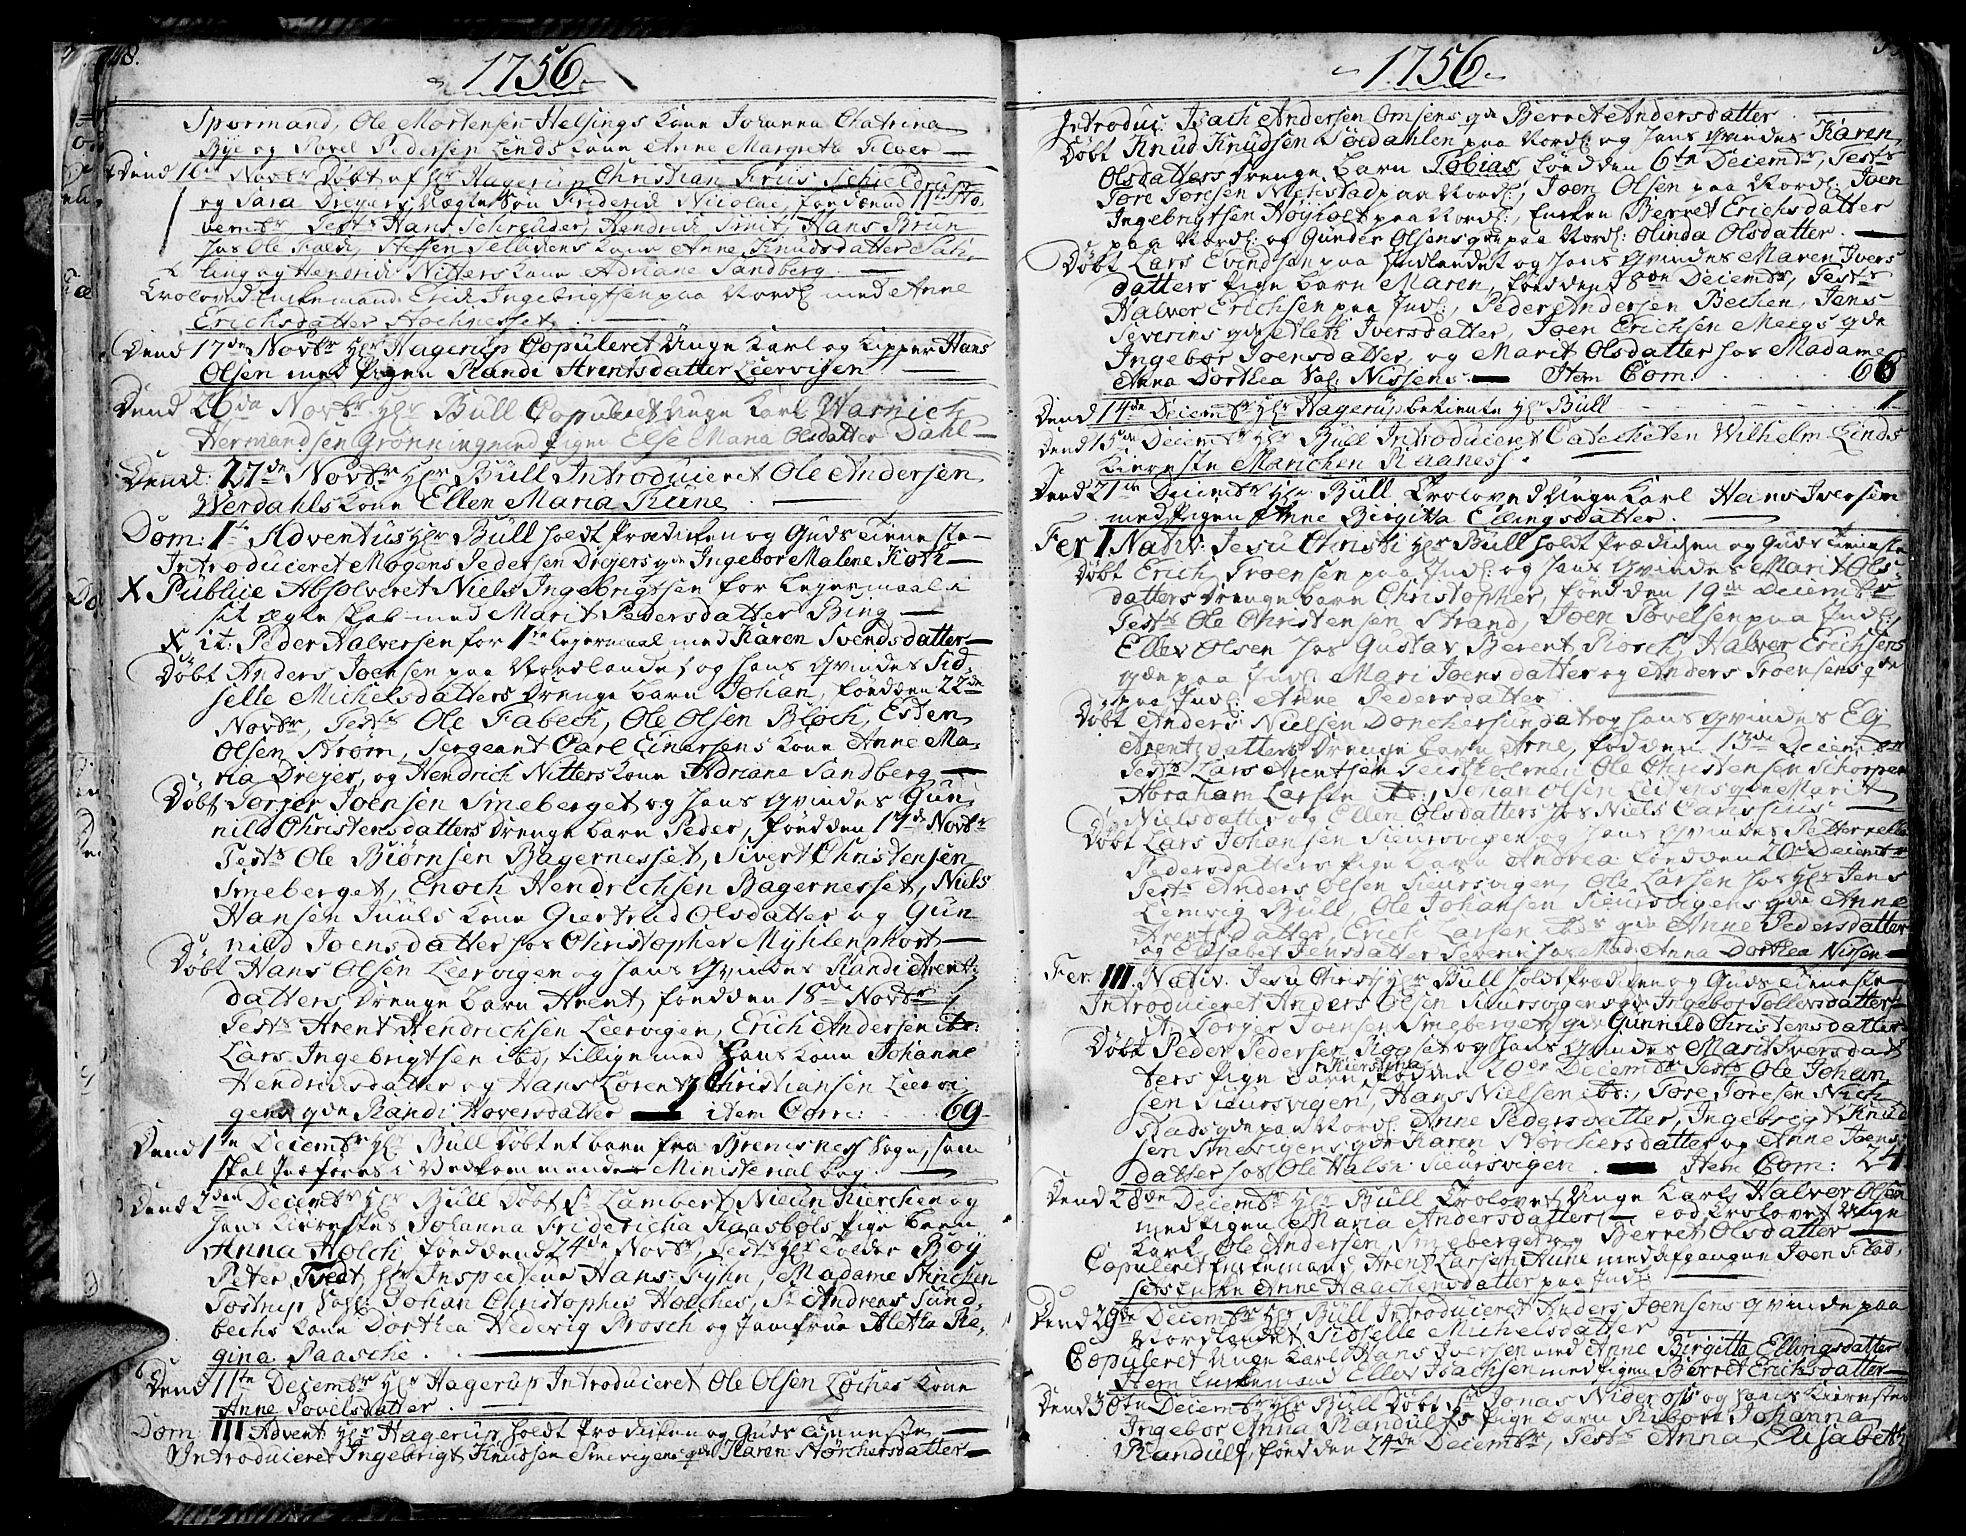 48.
1756
Spormand, Ole Mortensen Helsings Kone Johanna Chatrina
Bye og Povel Pedersen Linds Kone Anne Margreta Elver
Dend 16de Novbr Døbt af Hr Hagerup Christian Friis Schieldrup
og Sara Dreyers ægte Søn Friderich Nicolai, fød dend 11te No-
vembr Test: Hans Schreuder, Hendrich Smit, Hans Brun
hos Ole Kold, Kone Anne Knudsdatter
ling og Hendrich Nitters Kone Adriane Sandberg.
Troloved Enkemand Erich Ingebrigtsen paa Nordl: med Anne
Erichsdatter Hochnesset
Dend 17de Novbr Hr Hagerup Copuleret Unge Karl og Kipper Hans
Olsen med Pigen Randi Arentsdatter Leervigen
Dend 26da Novbr Hr Bull Copuleret Unge Karl Warnich
Hermandsen Grønning med Pigen Else Maria Olsdatter Dahl
Dend: 27de Novbr Hr Bull Introduceret Ole Andersen
Werdahls Kone Ellen Maria Rune
Dom: 1te Adventus Hr Bull holdt Prædiken og Guds Tieneste
Introduceret Mogens Pedersen Dreyers qde Ingebor Malene Koth
X Publice Absolveret Niels Ingebrigtsen for Leyermaal i
sit ægteskab med Marit Pedersdatter Bing
X it: Peder Halversen for 1te Leyermaal med Karen Svendsdatter
Døbt Anders Joensen paa Nordlandet og hans Qvindes Sid-
selle Michelsdatters Drenge barn Johan, fød den 22de
Novbr, Test: Ole Fabech, Ole Olsen Bloch, Esten
Olsen Strøm, Sergeant Carl Einersens Kone Anne Ma-
ria Dreyer, og Hendrich Nitters Kone Adriane Sandberg
Døbt Torjer Joensen Smeberget og hans Qvindes Gun-
nild Christensdatters Drenge barn Peder, fød den 17de Novbr
Test: Ole Biørnsen Bagernesset, Sivert Christensen
Smeberget, Enoch Hendrichsen Bagernesset, Niels
Hansen Juuls Kone Giertrud Olsdatter og Gun-
nild Joensdatter hos Christopher Myhlenphort
Døbt Hans Olsen Leervigen og hans Qvindes Randi Arent-
datters Drenge barn Arent, fød den 18de Novbr
Test: Arent Hendrichsen Leervigen, Erich Andersen ib:
Lars Ingebrigtsen ibd, tillige med hans Kone Johanne
Hendrichsdatter og Hans Lorentz Christiansen Leervi-
gens qde Randi Hoversdatter item Com: 69
Dend 1te Decembr Hr Bull Døbt et barn fra Bremsness Sogn, som
skal indføres i Vedkommende Ministerial Bog.
Dend 2den Decembr Hr Bull Døbt Sr Lambert Kierchen og
hans Kierestes Johanna Fridericha Raasbøls Pige barn
Anna Holch, fød dend 24de Novbr, Test: Hr Tolder Boy
Peter Tvedt, Hr Inspecteur Hans Fyhn, Madame Stinchen
Tostrup, Johan Christopher Holches, Sr Andreas Sund-
bechs Kone Dorthea Hedevig Brosch og Jomfrue Aletha Re-
gina Paasche.
Dend 11te Decembr Hr Hagerup Introduceret Ole Olsen Kone
Anne Povelsdatter.
Dom: III Advent Hr Hagerup holdt Prædiken og Guds Tieneste
Introduceret Ingebrigt Knudsen Smevigens qde Karen Størchersdatter
1756
Introduc: Isach Andersen Omsens qde Berret Andersdatter
Døbt Knud Knudsen paa Nordl: og hans Qvindes Karen
Olsdatters Drenge barn Tobias fød den 6te Decembr, Test:
Tore Toresen Nichstad paa Nordl:, Joen Olsen paa Nordl: Joen
Ingebrigtsen Høyholt paa Nordl:, Enchen Berret Erichsdatter
paa Nordl: og Gunder Olsens qde paa Nordl: Olinda Olsdatter.
Døbt Lars Evindsen paa Indlandet og hans Qvindes Maren Ivers
datters Pige barn Maren, fød den 8de Decembr, Test:
Halver Erichsen paa Indl:, Peder Andersen Bechen, Jens
Severins qde Aleth Iversdatter, Joen Erichsen Meegs qde
Ingebor Joensdatter, og Marit Olsdatter hos Madame
Anna Dorthea Sal: Nissens. Item Com: 66
Dend 14de Decembr Hr Hagerup betiente Hr Bull 1.
Dend 15de Decembr Hr Bull Introduceret Catecheten Wilhelm Linds
Kiereste Marichen Raaness.
Dend 21de Decembr Hr Bull Troloved Unge Karl Hans Iversen
med Pigen Anne Birgitta Ellingsdatter.
Fer I Nativ: Jesu Christi Hr Bull holdt Prædichen og Guds Tieneste
Døbt Erich Troensen paa Indl: og hans Qvindes Marit Ols-
datters Drenge barn Christopher, fød den 19de Decembr
Test: Ole Christensen Strand, Joen Povelsen paa Indl:,
Ellev Olsen hos Gustav Berent Rosch, Halver Erichsens
qde paa Indl: Mari Joensdatter og Anders Troensens qde
paa Indl: Anne Pedersdatter
Døbt Anders Nielsen Donchersundet og hans Qvindes Eli
Arentzdatters Drenge barn Arne, fød den 13de Decembr
Test: Lars Arentsen Teistholmen Ole Christensen Schorpen
Abraham Larsen ib:, Johan Olsen Leisens qde Marit
Nielsdatter og Ellen Olsdatters hos Niels Carlssius
Døbt Lars Johansen Sieursvigen og hans Qvindes Petternella
Pedersdatters Pige barn Andrea fød den 20de Decembr
Test: Anders Olsen Sieursvigen, Ole Larsen hos Hr Jens
Lemvig Bull, Ole Johansen Sieursvigens qde Anne
Arentsdatter, Erich Larsen ibds qde Anne Pedersdatter
og Elisabet Jensdatter Severin hos Mad: Anna Dorthea Nissen
Fer. III. Nativ. Jesu Christi Hr Bull holdt Prædiken og Guds Tieneste
Introduceret Anders Olsen Sieursvigens qde Ingebor Tollevsdatter
it Torger Joensen Smeberget qde Gunnild Christensdatter
Døbt Peder Pedersen og hans Qvindes Marit Iversdat-
ters Pige barn Kierstina, fød den 20de Decembr Test: Ole Johan-
sen Sieursvigen, Hans Nielsen ib:, Tore Toresen Nich-
stads qde paa Nordl: Anne Pedersdatter, Ingebrigt Knud-
sen Smevigens qde Karen Størchersdatter og Anne Joens-
datter hos Ole Halsn Sieursvigen Item Com: 24.
Dend 28de Decembr Hr Bull Trolovet Unge Karl Halvor Olsen
med Pigen Maria Andersdatter, eod Trolovet Unge
Karl Ole Andersen Smeberget og Berret Olsdatter
Copuleret Enkemand Arent Larsen Aune med afgangne Joen Flad-
sets Enke Anne Haachensdatter paa Indl:
Dend 29de Decembr Hr Bull Introduceret Anders Joensens Qvinde paa
Nordlandet Sidselle Michelsdatter
Copuleret Unge Karl Hans Iversen med Anne Birgitta Ellingsdatter
Item Enkemand Ellev Isachsen med Pigen Berret Erichsdatter
Dend 30te Decembr Hr Bull Døbt Sr Jonas Nideros og hans Kierestes
Ingebor Anna Randulfs Pige barn Johanna
Randulf, fød den 24de Decembr, Test: Anna Elisabeth